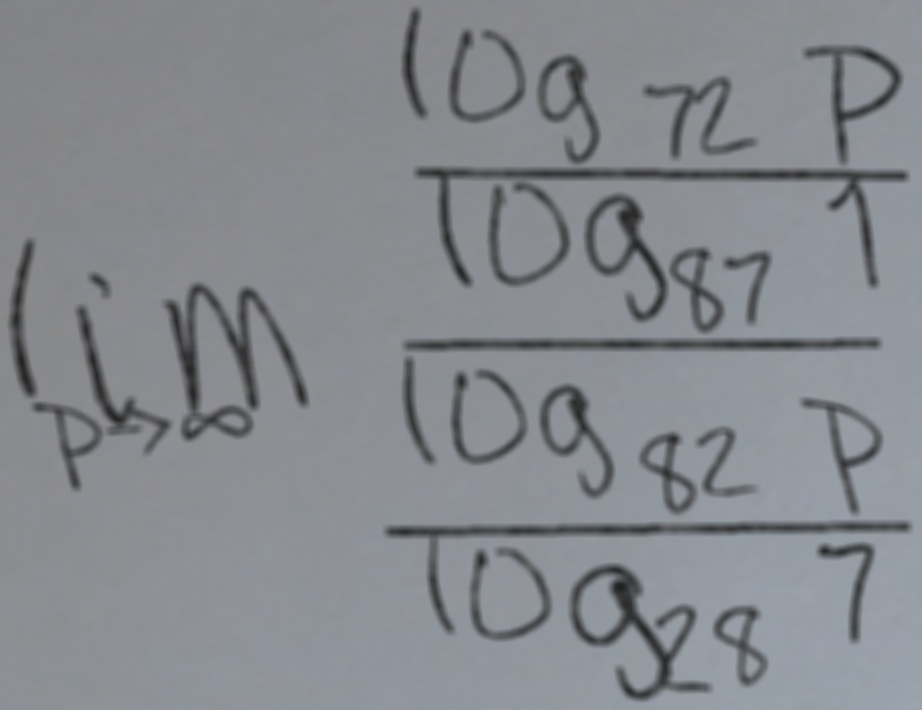 lim p→∞
log 72 P
log 87 1
log 82 P
log 28 7